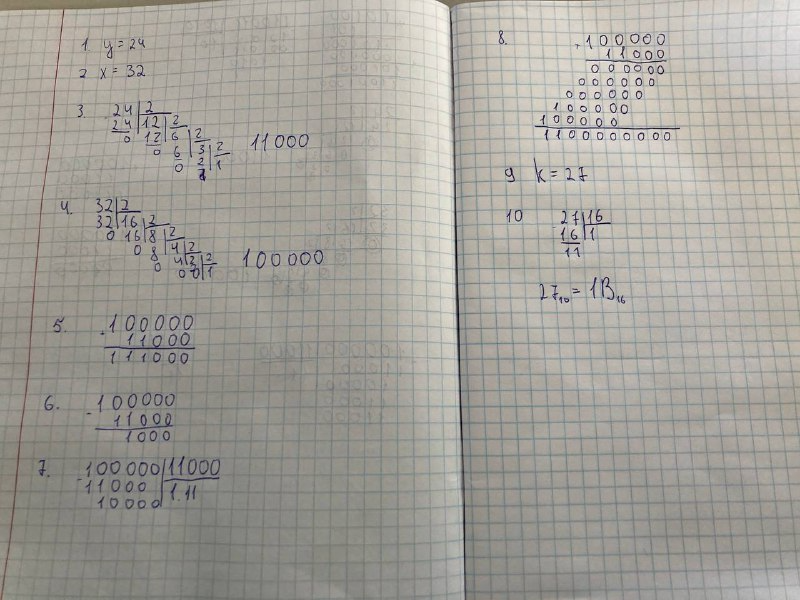 1. y = 24
2 x = 32
3. 24 2
24 12 2
0 12 6 2
0 6 3 2
0 2 1
1
11000
4. 32 2
32 16 2
0 16 8 2
0 8 4 2
0 4 2 2
0 0 1
100000
5. 100000
11000
111000
6. - 100000
11000
1000
7. - 100000 11000
11000 1.11
10000
8. 100000
11000
000000
000000
000000
100000
100000
1100000000
9 k = 27
10 27 16
16 1
11
27₁₀ = 1B₁₆